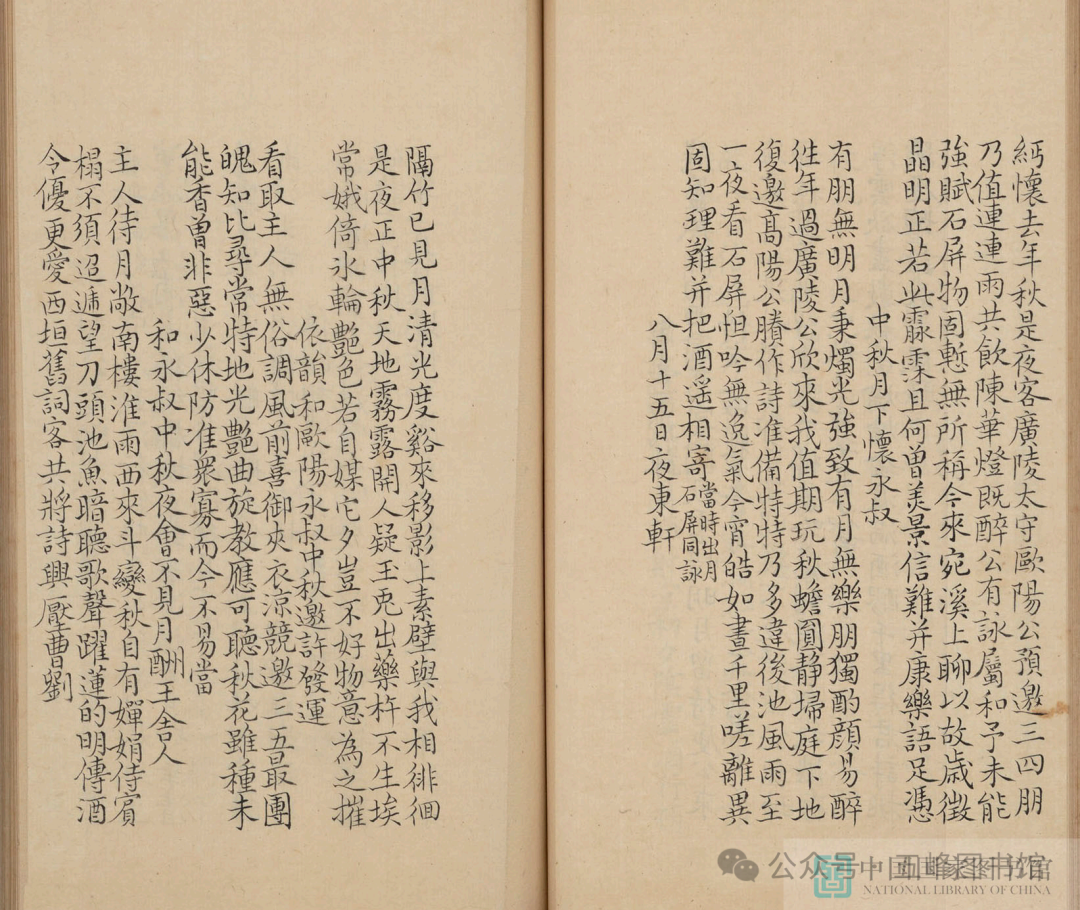 緬懷去年秋是夜客廣陵太守歐陽公預邀三四朋
乃值連連雨共飲陳華燈既醉公有詠屬和予未能
強賦石屏物固慙無所稱今來宛溪上聊以故歲徵
晶明正若此霖霪且何曾美景信難并康樂語足憑
中秋月下懷永叔
有朋無明月秉燭光強致有月無樂朋獨酌顔易醉
徃年過廣陵公欣來我值期玩秋蟾圓静埽庭下地
復邀髙陽公賸作詩淮備特特乃多違後池風雨至
一夜看石屏怛吟無逸氣今宵皓如晝千里嗟離異
固知理難并把酒遥相寄當時出月石屏同詠
八月十五日夜東軒
隔竹已見月清光度谿來移影上素壁與我相徘徊
是夜正中秋天地霧露開人疑玉兎出藥杵不生埃
常娥倚氷輪艷色若自媒它夕豈不好物意為之摧
依韻和歐陽永叔中秋邀許發運
看取主人無俗調風前喜御夾衣涼競邀三五最團
魄知比尋常特地光艷曲旋教應可聽秋花雖種未
能香曾非惡少休防准衆寡而今不易當
和永叔中秋夜會不見月酬王舍人
主人待月敞南樓淮雨西來斗變秋自有嬋娟侍賓
榻不須迢遞望刀頭池魚暗聽歌聲躍蓮的明傳酒
令優更愛西垣舊詞客共將詩興壓曹劉
公众号·五峰图书馆
中国国家图书馆
NATIONAL LIBRARY OF CHINA